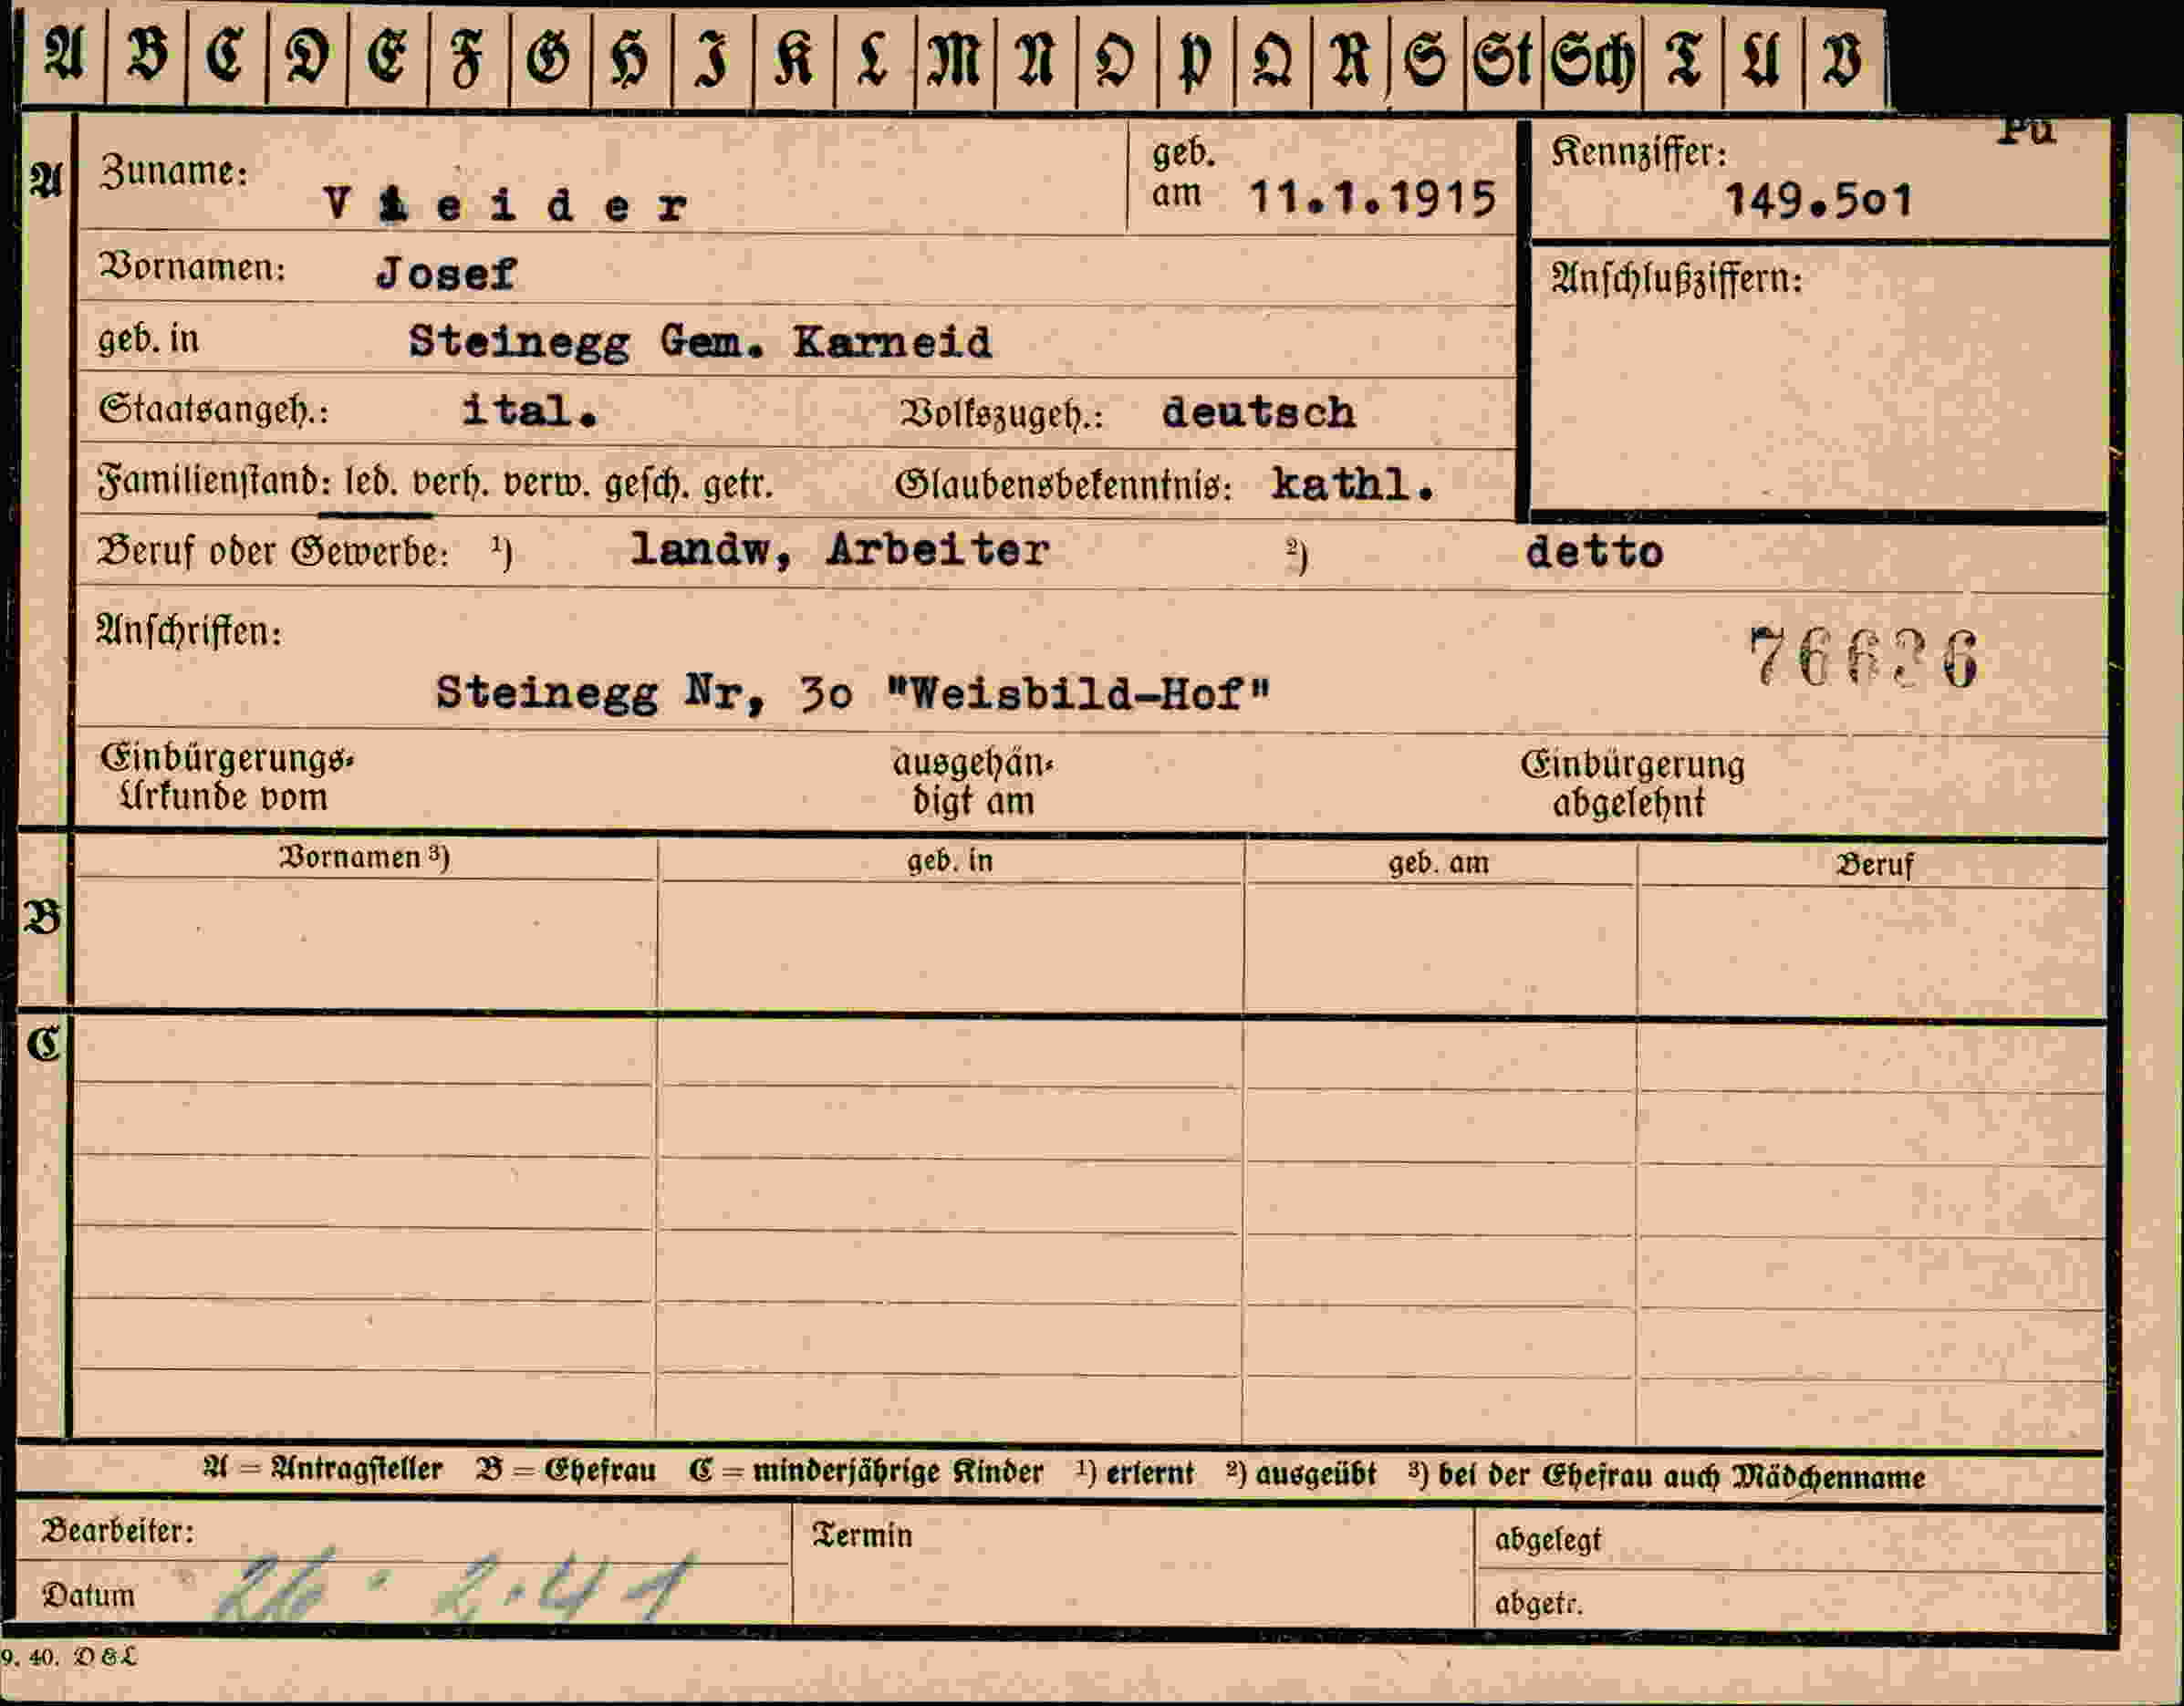 A B C D E F G H I K L M N O P Q R S St Sch T U V
Pu
A Zuname: Vieider geb. am 11.1.1915 Kennziffer: 149.5o1
Vornamen: Josef Anschlußziffern:
geb. in Steinegg Gem. Karneid
Staatsangeh.: ital. Volkszugeh.: deutsch
Familienstand: led. verh. verw. gesch. getr. Glaubensbekenntnis: kathl.
Beruf oder Gewerbe: ¹) landw, Arbeiter ²) detto
Anschriften: 76636
Steinegg Nr, 3o "Weisbild-Hof"
Einbürgerungs- ausgehän- Einbürgerung
Urkunde vom digt am abgelehnt
Vornamen ³) geb. in geb. am Beruf
B
C
A = Antragsteller B = Ehefrau C = minderjährige Kinder ¹) erlernt ²) ausgeübt ³) bei der Ehefrau auch Mädchenname
Bearbeiter: Termin abgelegt
Datum 26. 2.41 abgetr.
9. 40. D & L